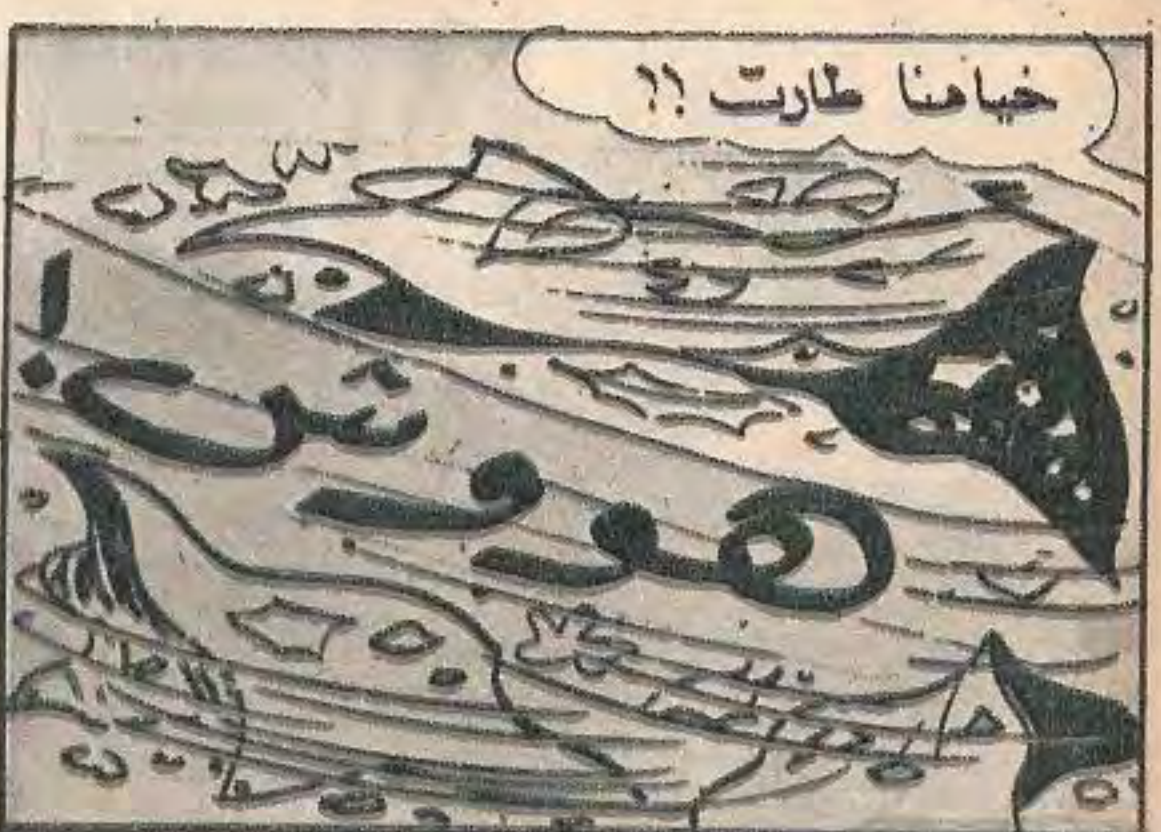 خيامنا طارت !!
هووش !